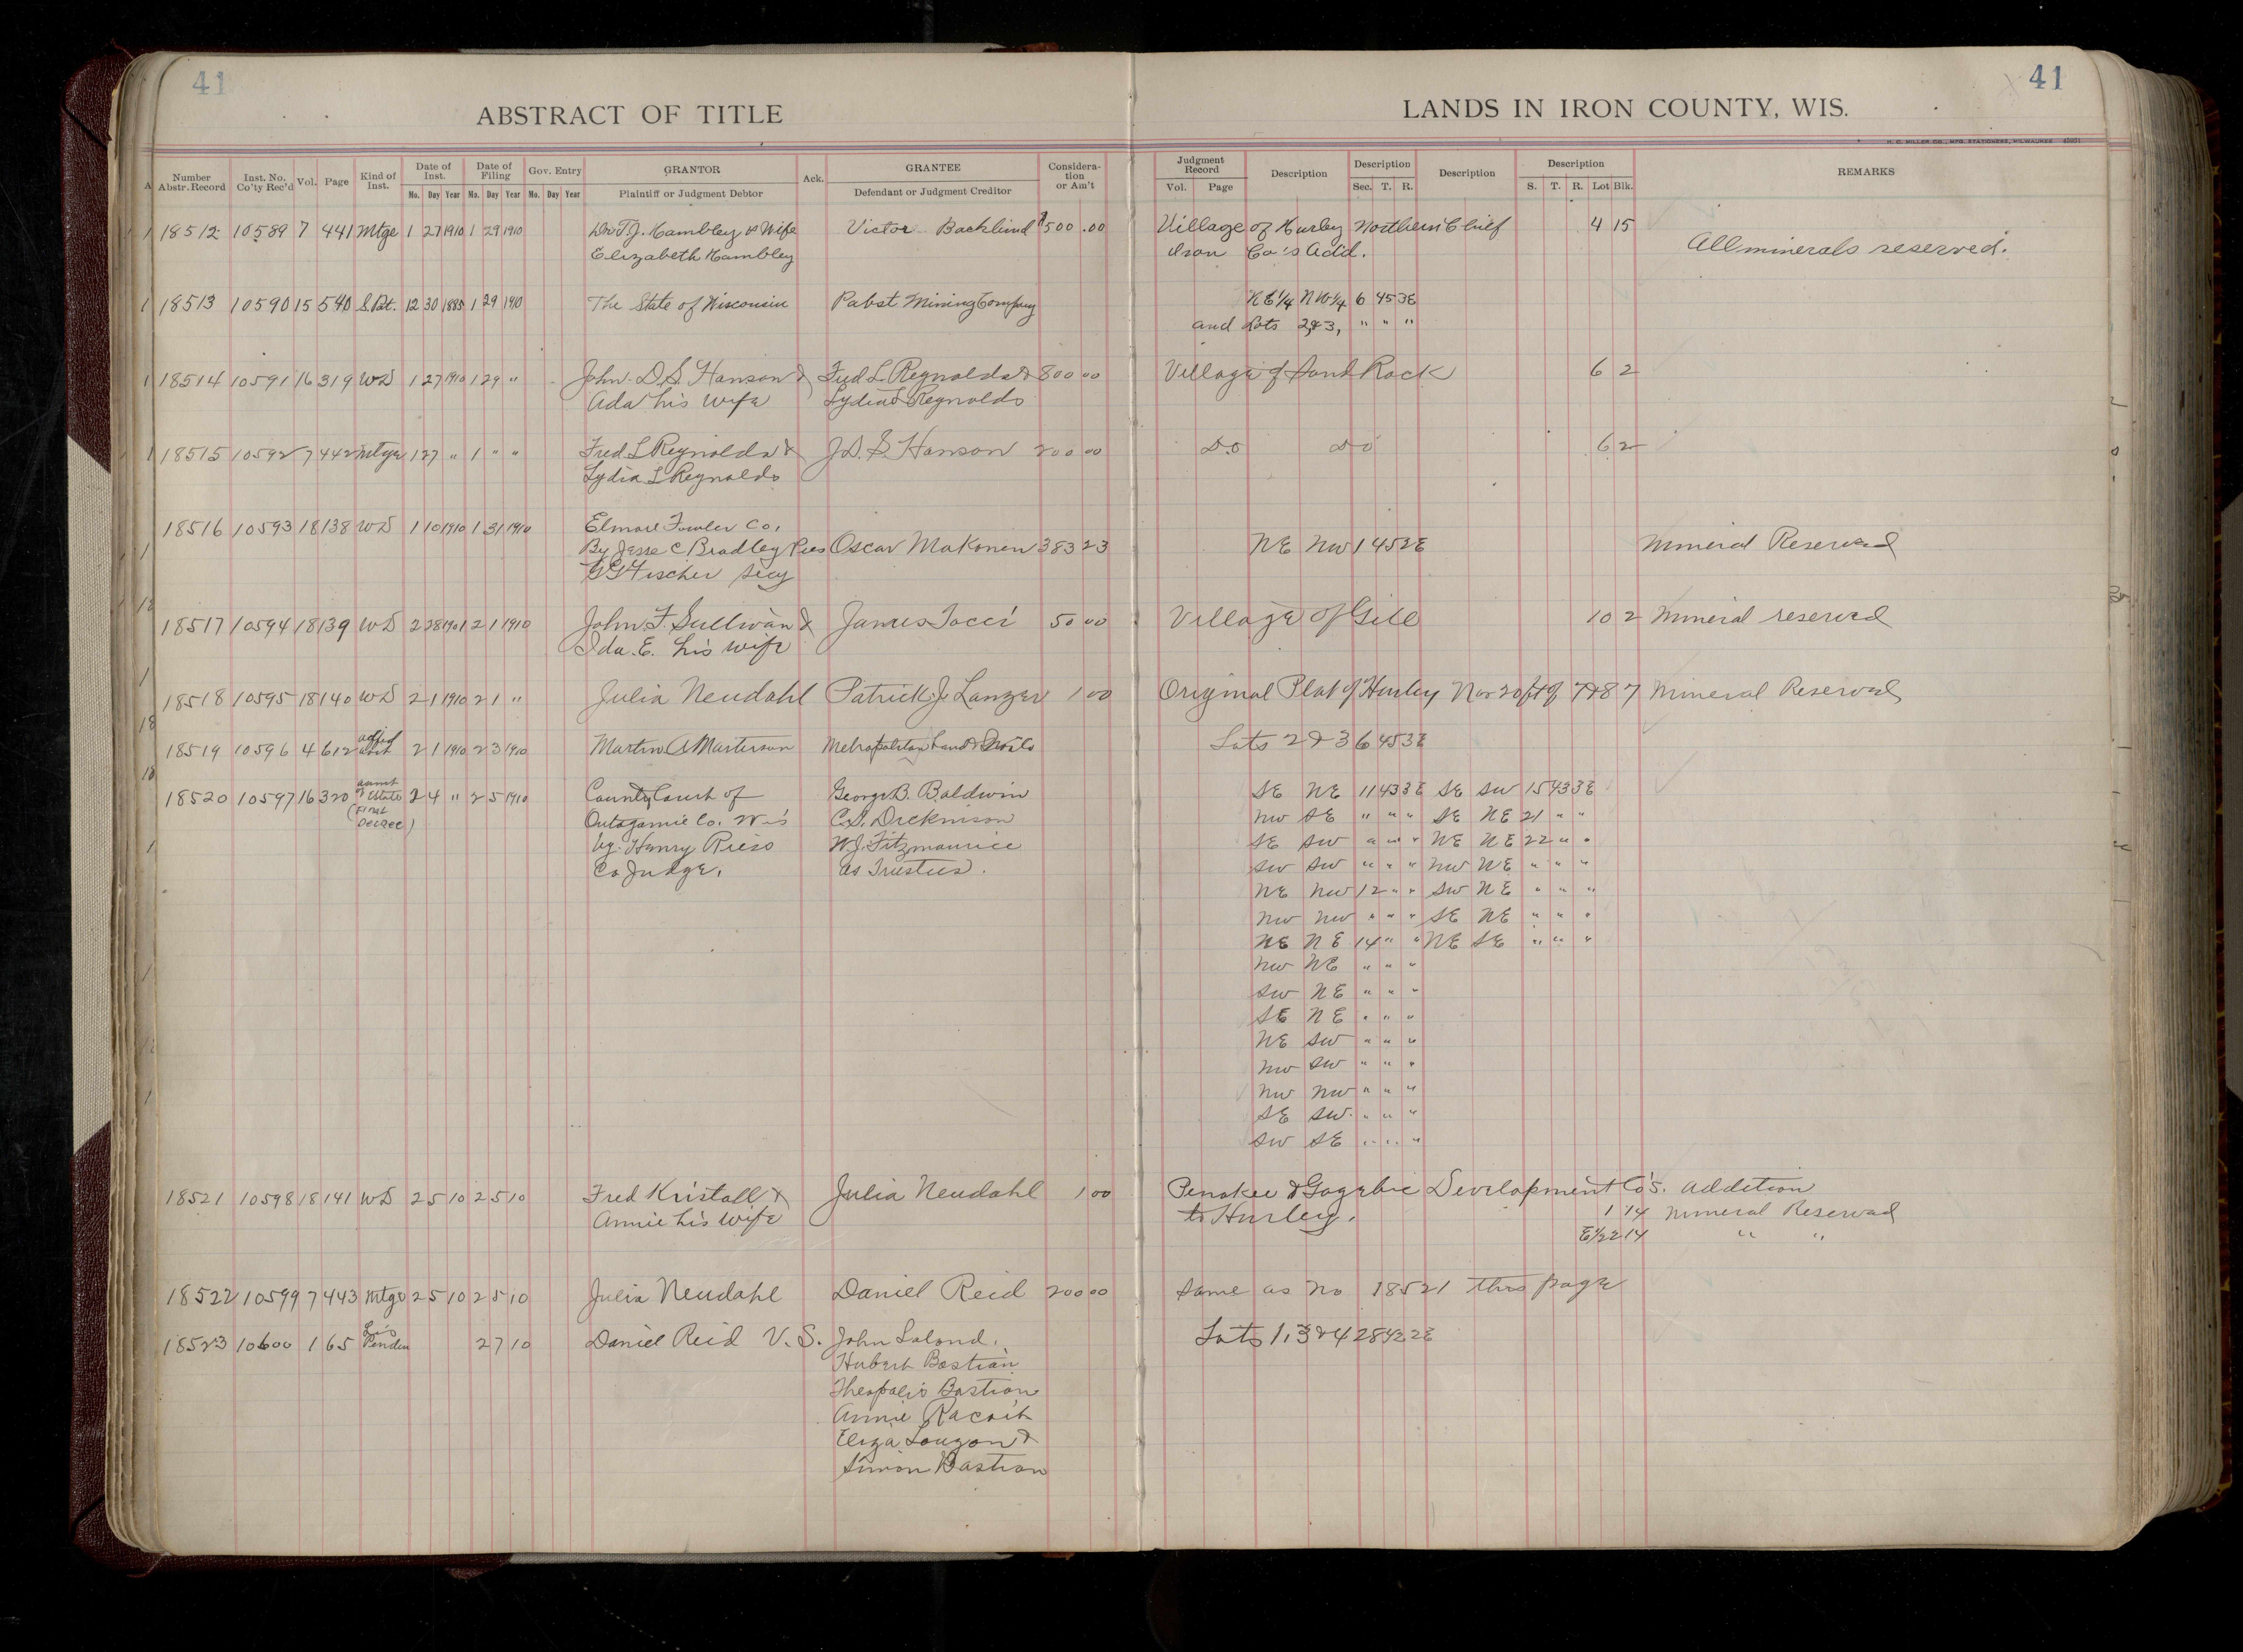 41
41
ABSTRACT OF TITLE
LANDS IN IRON COUNTY, WIS.
H. C. MILLER CO., MFG. STATIONERS, MILWAUKEE
Number Abstr. Record Inst. No. Co'ty Rec'd Vol. Page Kind of Inst. Date of Inst. Date of Filing Gov. Entry GRANTOR Ack. GRANTEE Considera-tion or Am't Judgment Record Description Description Description Description REMARKS
Mo. Day Year Mo. Day Year Mo. Day Year Plaintiff or Judgment Debtor Defendant or Judgment Creditor Vol. Page Sec. T. R. S. T. R. Lot Blk.
18512 10589 7 441 Mtge 1 27 1910 1 29 1910 Dr. T. J. Hambley & Wife Victor Backlund $500.00 Village of Hurley Northern Chief 4 15
Elizabeth Hambley Iron Co's Add. All minerals reserved.
18513 10590 15 540 S. Pat. 12 30 1885 1 29 1910 The State of Wisconsin Pabst Mining Company NE 1/4 NW 1/4 6 45 3E
and Lots 2, & 3, " " "
18514 10591 16 319 WD 1 27 1910 1 29 " John D. S. Hanson & Fred L. Reynolds & 800 00 Village of Sand Rock 6 2
Ada his wife Lydia L Reynolds
18515 10592 7 442 Mtge 1 27 " 1 " " Fred L Reynolds & J. D. S. Hanson 200 00 Do Do 6 2
Lydia L Reynolds
18516 10593 18 138 WD 1 10 1910 1 31 1910 Elmore Fowler Co.
By Jesse C Bradley Pres Oscar Makonen 383 23 NE NW 1 45 2E Mineral Reserved
G G Fischer Secy
18517 10594 18 139 WD 2 28 1901 2 1 1910 John F. Sullivan & James Tocci 50 00 Village of Gile 10 2 Mineral reserved
Ida. E. his wife
18518 10595 18 140 WD 2 1 1910 2 1 " Julia Neudahl Patrick J. Lanzer 1 00 Original Plat of Hurley Nor 20 ft of 7 & 8 7 Mineral Reserved
18519 10596 4 612 2 1 1910 2 3 1910 Martin A Marterson Metropolitan Land & Lots 2 & 3 6 45 3E
18520 10597 16 320 assmt of Estate (Final Decree) 2 4 " 2 5 1910 County Court of George B. Baldwin SE NE 11 43 3E SE SW 15 43 3E
Outagamie Co. Wis C. S. Dickinson NW SE " " " SE NE 21 " "
by Henry W. J. Fitzmaurice SE SW " " " NE NE 22 " "
Co Judge. as Trustees. SW SW " " " NW NE " " "
NE NW 12 " " SW NE " " "
NW NW " " " SE NE " " "
NE NE 14 " " NE SE " " "
NW NE " " "
SW NE " " "
SE NE " " "
NE SW " " "
NW SW " " "
NW NW " " "
SE SW " " "
SW SE " " "
18521 10598 18 141 WD 2 5 10 2 5 10 Fred Kristall & Julia Neudahl 1 00 Penokee & Gogebic Development Co's. Addition
Annie his wife to Hurley. 1 14 Mineral Reserved
E 1/2 2 14 " "
18522 10599 7 443 Mtge 2 5 10 2 5 10 Julia Neudahl Daniel Reid 200 00 Same as No 18521 this page
18523 10600 1 65 Lis Penden 2 7 10 Daniel Reid V. S. John Lalond, Lots 1, 3 & 4 28 42 2E
Hubert Bastian
Theopolis Bastian
Annie Racoit
Eliza Louzon &
Simon Bastian